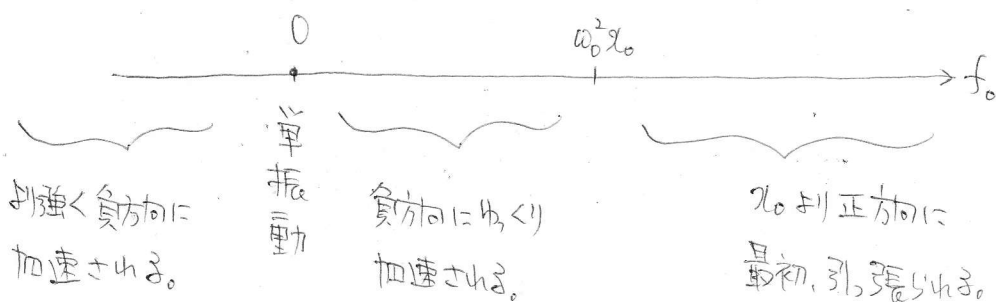 0
ω₀²x₀
f₀
単振動
より強く負方向に
加速される。
負方向にゆっくり
加速される。
x₀より正方向に
最初、引っ張られる。